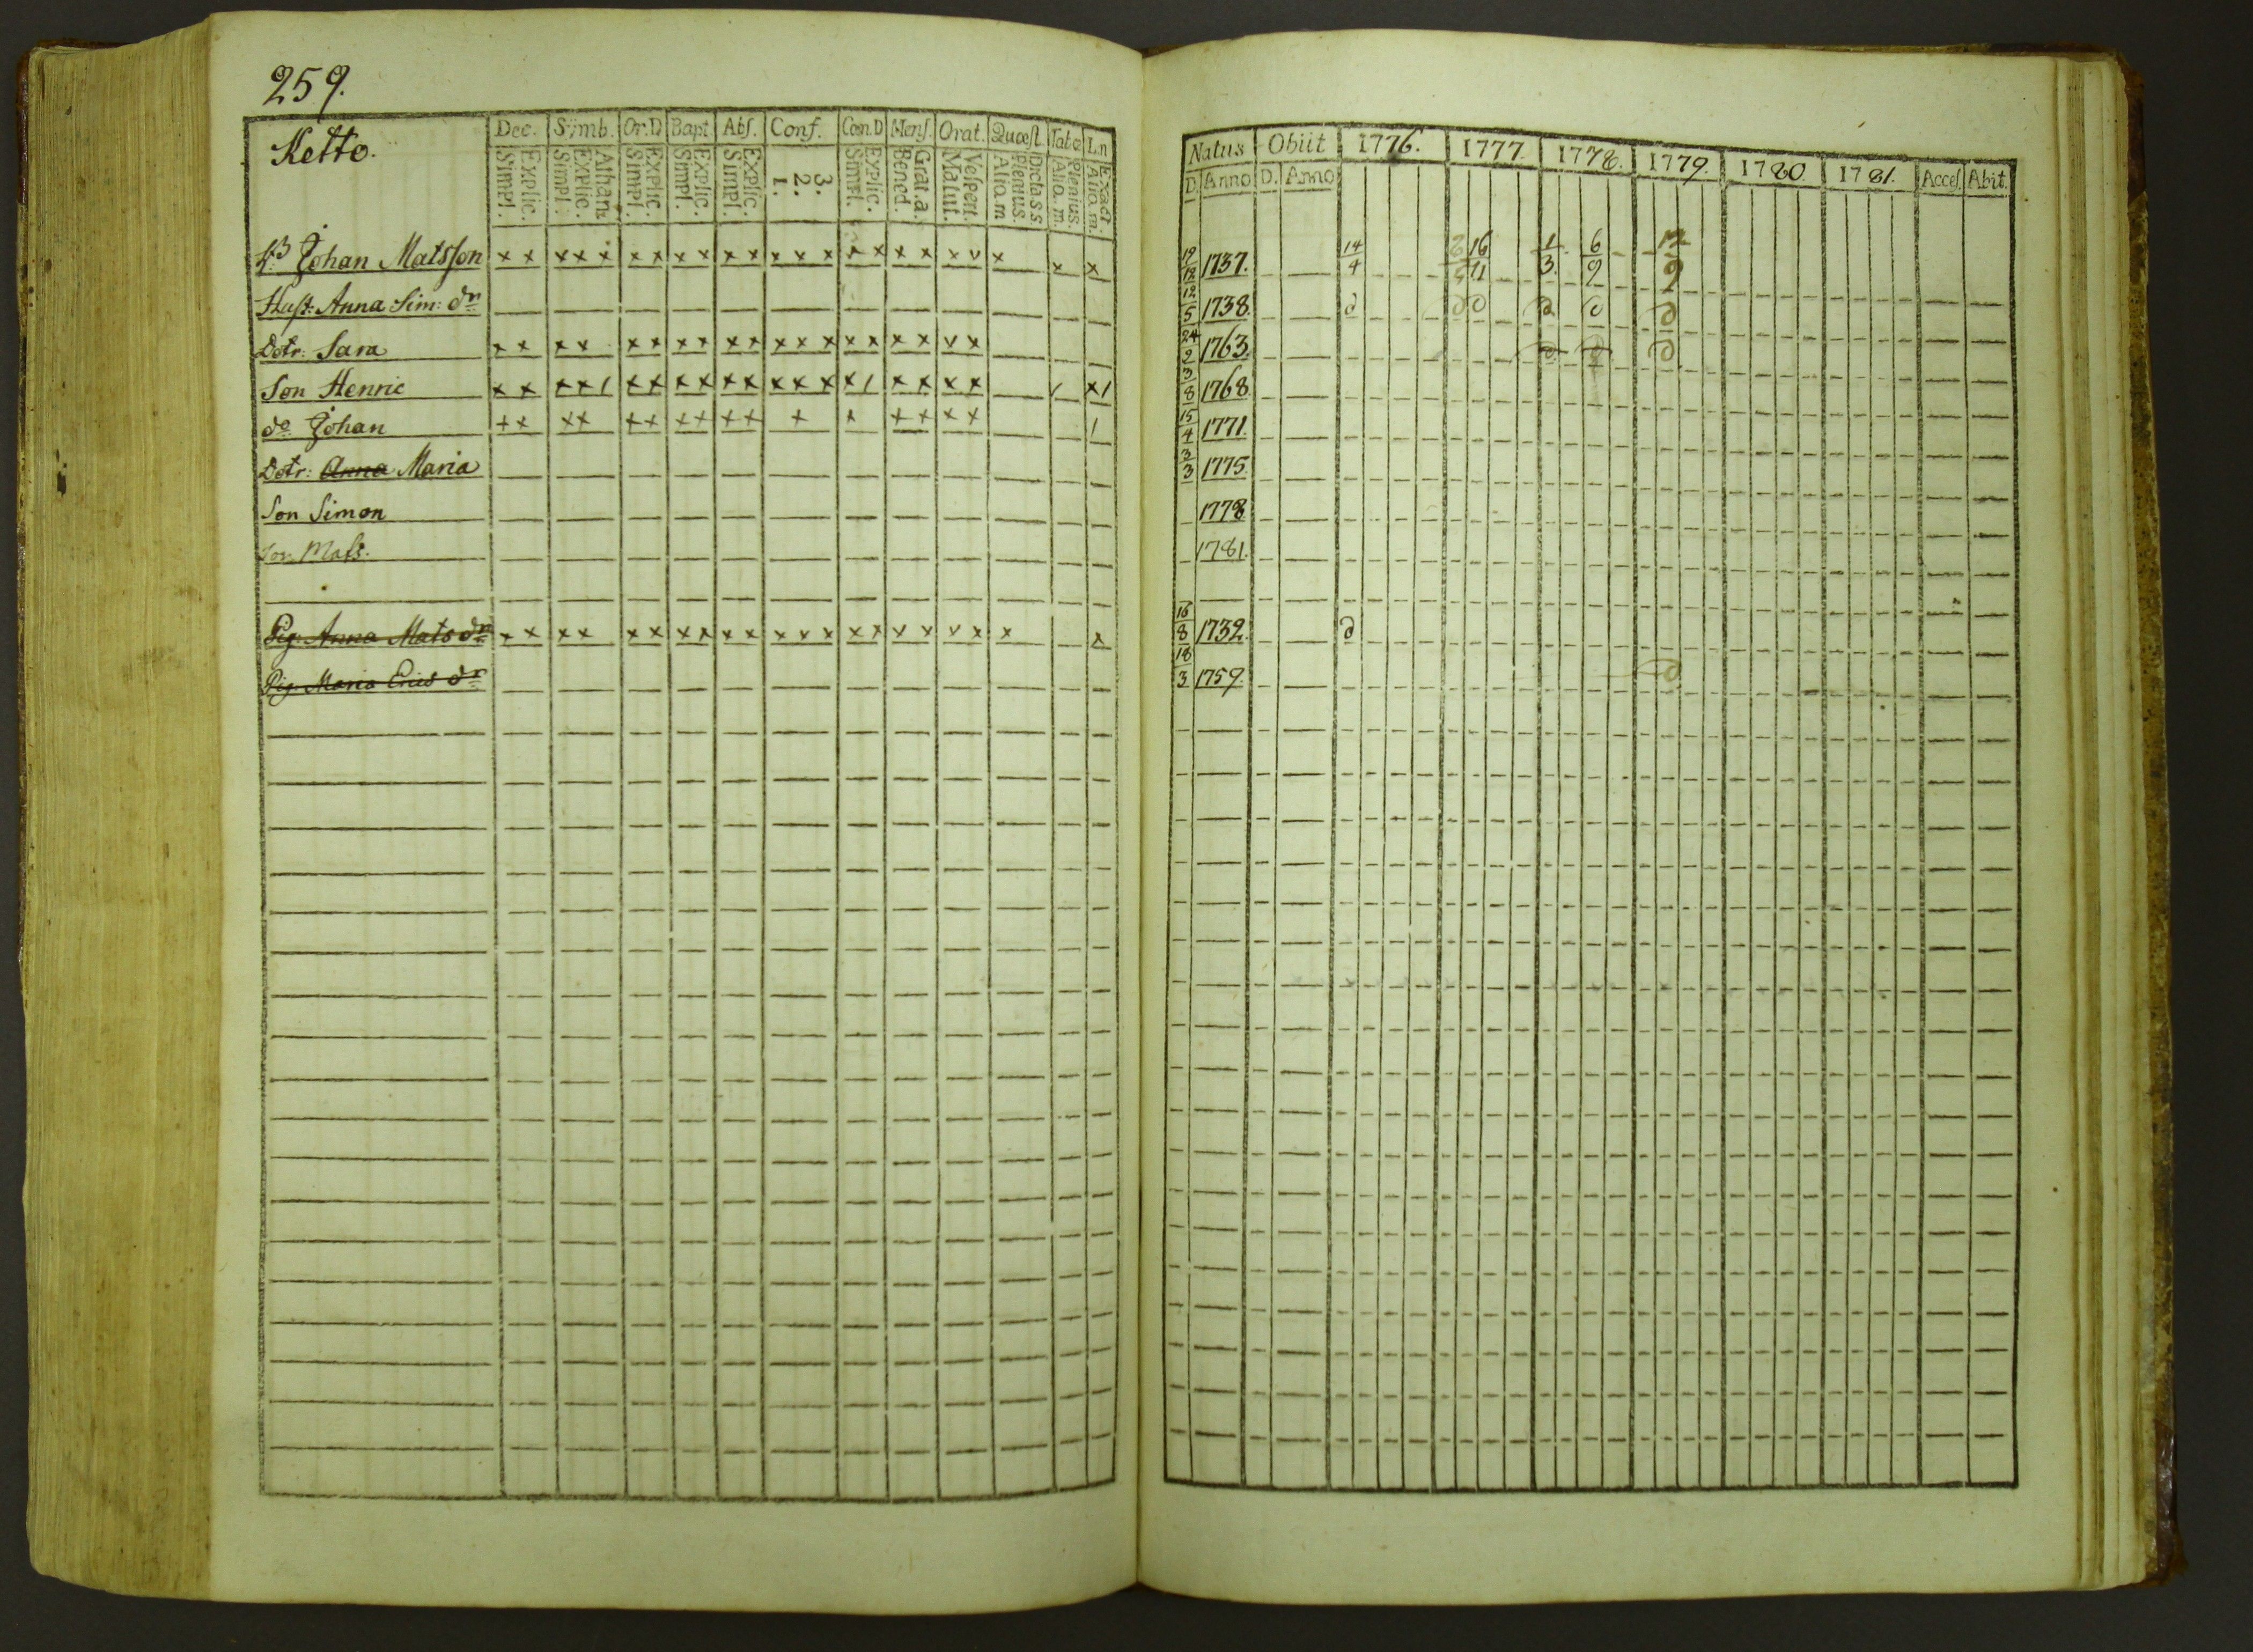 259.
Ketto.
Dec. Symb. Or.D Bapt. Abs. Conf. Cœn.D Mens. Orat. Quæst. Tabœ L.n
Simpl. Explic. Simpl. Explic. Athan. Simpl. Explic. Simpl. Explic. Simpl. Explic. 1. 2. 3. Simpl. Explic. Bened. Grat.a. Matut. Vespert. Aliq.m Plenius. Dicta.s.s Aliq.m. Plenius. Aliq.m. Exact.
Johan Matsson x x x x x x x x x x x x x x x x x x v x x x
Hust: Anna Sim: dr
Dotr: Sara x x x x x x x x x x x x x x x x x v x
Son Henric x x x x 1 x x x x x x x x x x 1 x x x x 1 x 1
do Johan x x x x x x x x x x x x x x x x 1
Dotr: Anna Maria
Son Simon
Son Mats.
Pig: Anna Mats dr x x x x x x x x x x x x x x x v x v x x x
Pig: Maria Erics dr
Natus Obiit 1776. 1777. 1778. 1779. 1780 1781. Acces. Abit.
D. Anno D. Anno
19/12 1737. 14/4 16/11 1/3. 6/9 12/9
12/5 1738. d d d d d d
24/2 1763. d d d
3/8 1768.
15/4 1771.
3/3 1775.
1778
1781.
16/8 1732. d
18/3 1759. d